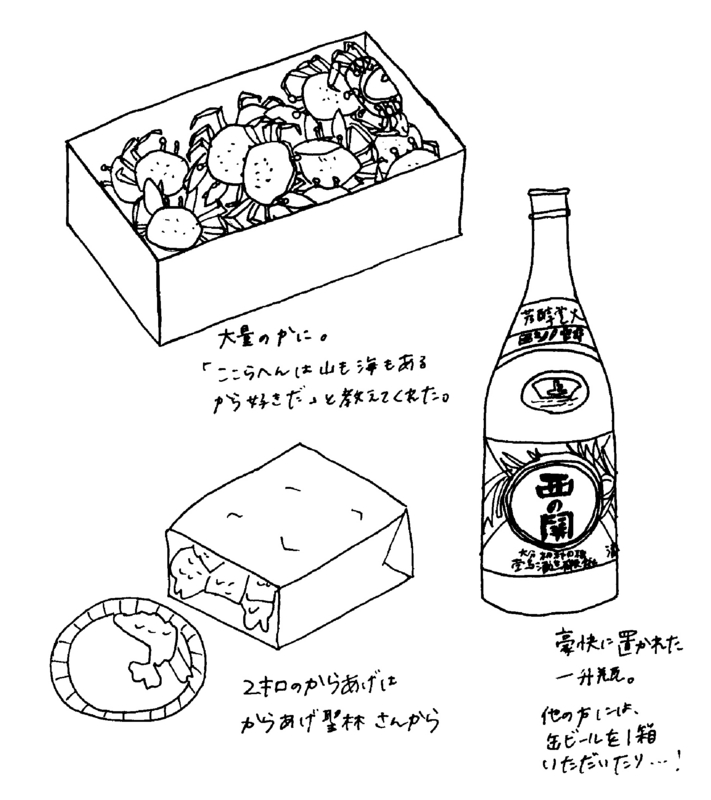 大量のかに。
「ここらへんは山も海もある
から好きだ」と教えてくれた。
芳醇
西の関
2キロのからあげは
からあげ聖林さんから
豪快に置かれた
一升瓶。
他の方には、
缶ビールを1箱
いただいたり…！